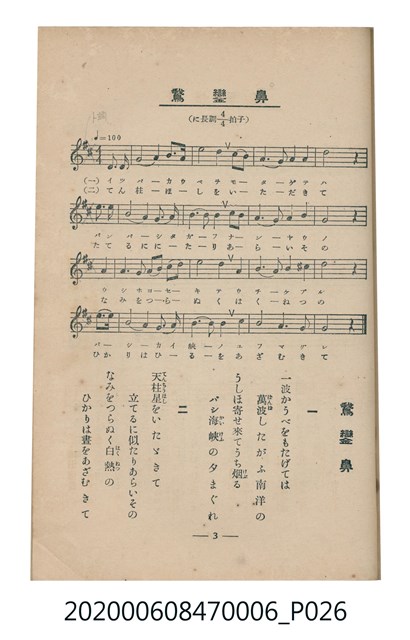 鵞鑾鼻
(に長調 4/4 拍子)
♩=100
(一) イツ パ ー カ ウ ベ ヲ モ ー タ ー ゲ テ ハ
(二) てん 柱 ー ほ ー し を い ー た ー だ き て
バン パ ー シ タ ガ ー フ ナ ー ン ー ヤ ウ ノ
た て る に に ー た ー り あ ら ー い そ の
ウ シ ホ ヨ ー セ ー キ テ ウ チ ー ケ ブ ル
な み を つ ー ら ー ぬ く は く ー ね つ の
バ ー シ ー カ イ 峽 ー ノ ユ フ マ グ レ
ひ か り は ひ る ー を あ ざ む き て
鵞鑾鼻
一
一波かうべをもたげては
萬波したがふ南洋の
うしほ寄せ來てうち烟る
バシ海峽の夕まぐれ
二
天柱星をいたゞきて
立てるに似たりあらいその
なみをつらぬく白熱の
ひかりは晝をあざむきて
— 3 —
202000608470006_P026